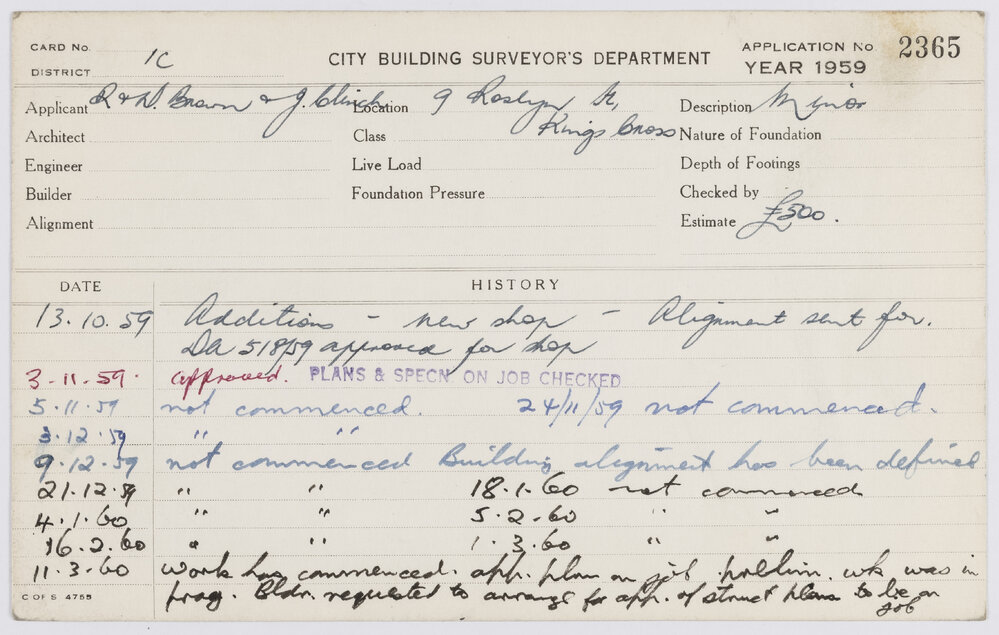 CARD No. 1C
DISTRICT
CITY BUILDING SURVEYOR'S DEPARTMENT
APPLICATION No 2365
YEAR 1959
Applicant R & W. Brown & J. Clinch Location 9 Roslyn St, Description Minor
Architect Class Kings Cross Nature of Foundation
Engineer Live Load Depth of Footings
Builder Foundation Pressure Checked by
Alignment Estimate £500.
DATE HISTORY
13.10.59 Additions - new shop - Alignment sent for.
DA 518/59 approved for shop
3-11-59. approved. PLANS & SPECN. ON JOB CHECKED
5.11.59 not commenced. 24/11/59 not commenced.
3.12.59 " "
9.12.59 not commenced Building alignment has been defined
21.12.59 " " 18.1.60 not commenced
4.1.60 " " 5.2.60 " "
16.2.60 " " 1.3.60 " "
11.3.60 work has commenced. app. plan on job prelim. wk was in
prog. Bldr. requested to arrange for app. of struct plans to be on
job
C OF S 4755